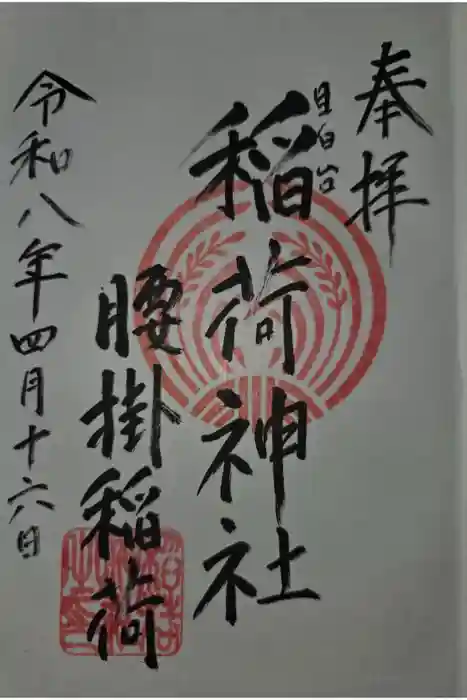 奉拝
目白台
稲荷神社
腰掛稲荷
令和八年四月十六日